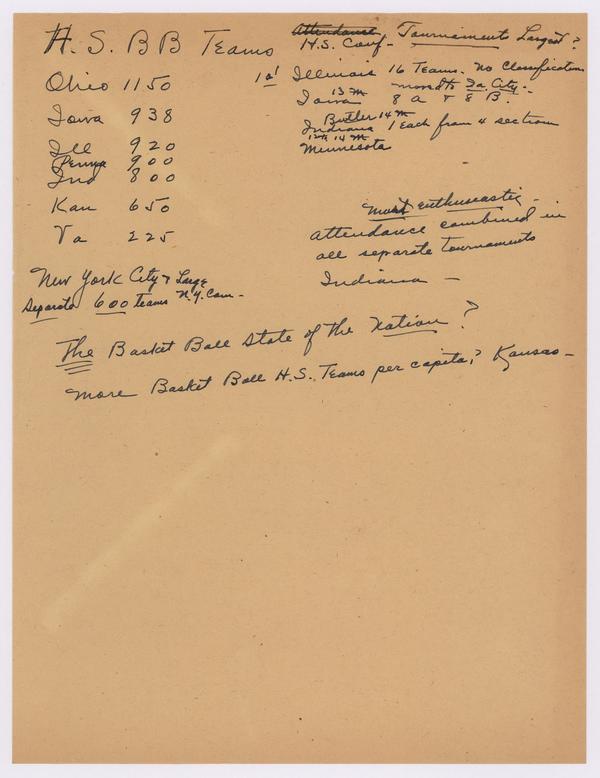 H. S. B B Teams
Ohio 1150
Iowa 938
Ill 920
Penna 900
Ind 800
Kan 650
Va 225
New York City & Large
Separate 600 teams N.Y. Com -
Attendance
H.S. Conf - Tournaments Largest?
1st Illinois 16 Teams - No Classification
13 M moved to Ia City -
Iowa 8 A & 8 B.
Butler 14 M
Indiana 1 Each from 4 sections
12th 14 M
Minnesota
-
Most enthusiastic -
attendance combined in
all separate tournaments
Indiana -
The Basket Ball State of the Nation?
more Basket Ball H.S. Teams per capita? Kansas -